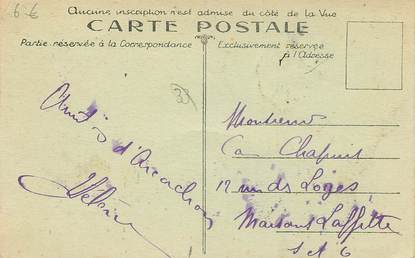 6 €
Aucune inscription n'est admise du côté de la Vue
CARTE POSTALE
Partie réservée à la Correspondance
Exclusivement réservée
à l'Adresse
33
d'Arcachon
Monsieur
Chapuis
12 rue des Loges
Maisons Laffitte
S et O